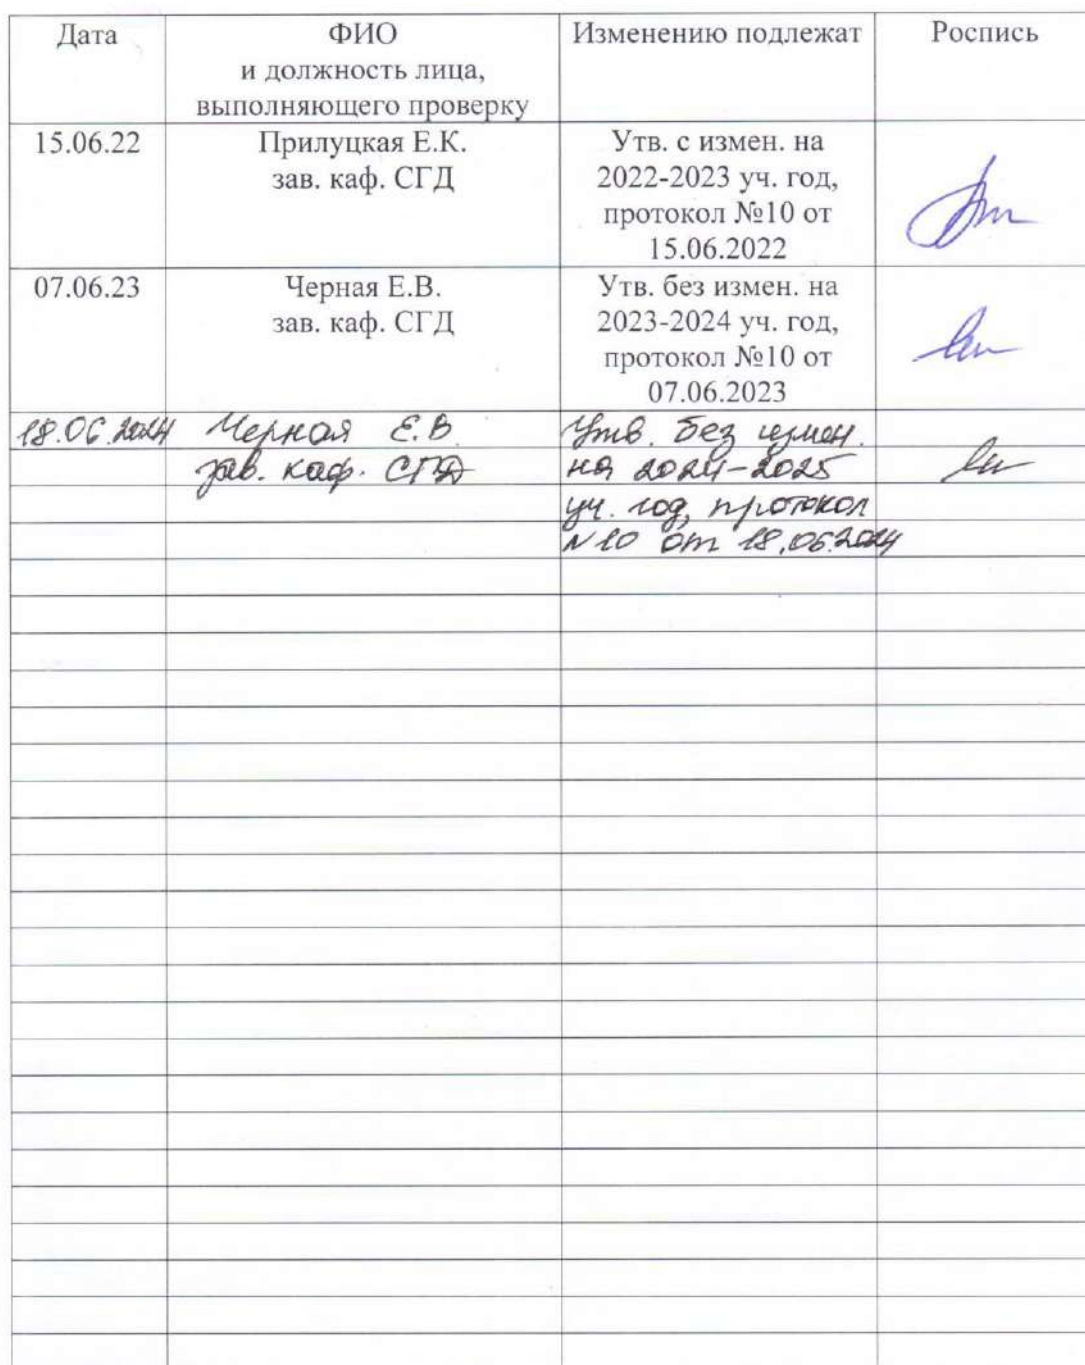 Дата
ФИО
и должность лица,
выполняющего проверку
Изменению подлежат
Роспись
15.06.22
Прилуцкая Е.К.
зав. каф. СГД
Утв. с измен. на
2022-2023 уч. год,
протокол №10 от
15.06.2022
07.06.23
Черная Е.В.
зав. каф. СГД
Утв. без измен. на
2023-2024 уч. год,
протокол №10 от
07.06.2023
18.06.2024
Черная Е.В.
зав. каф. СГД
Утв. без измен.
на 2024-2025
уч. год, протокол
№10 от 18.06.2024